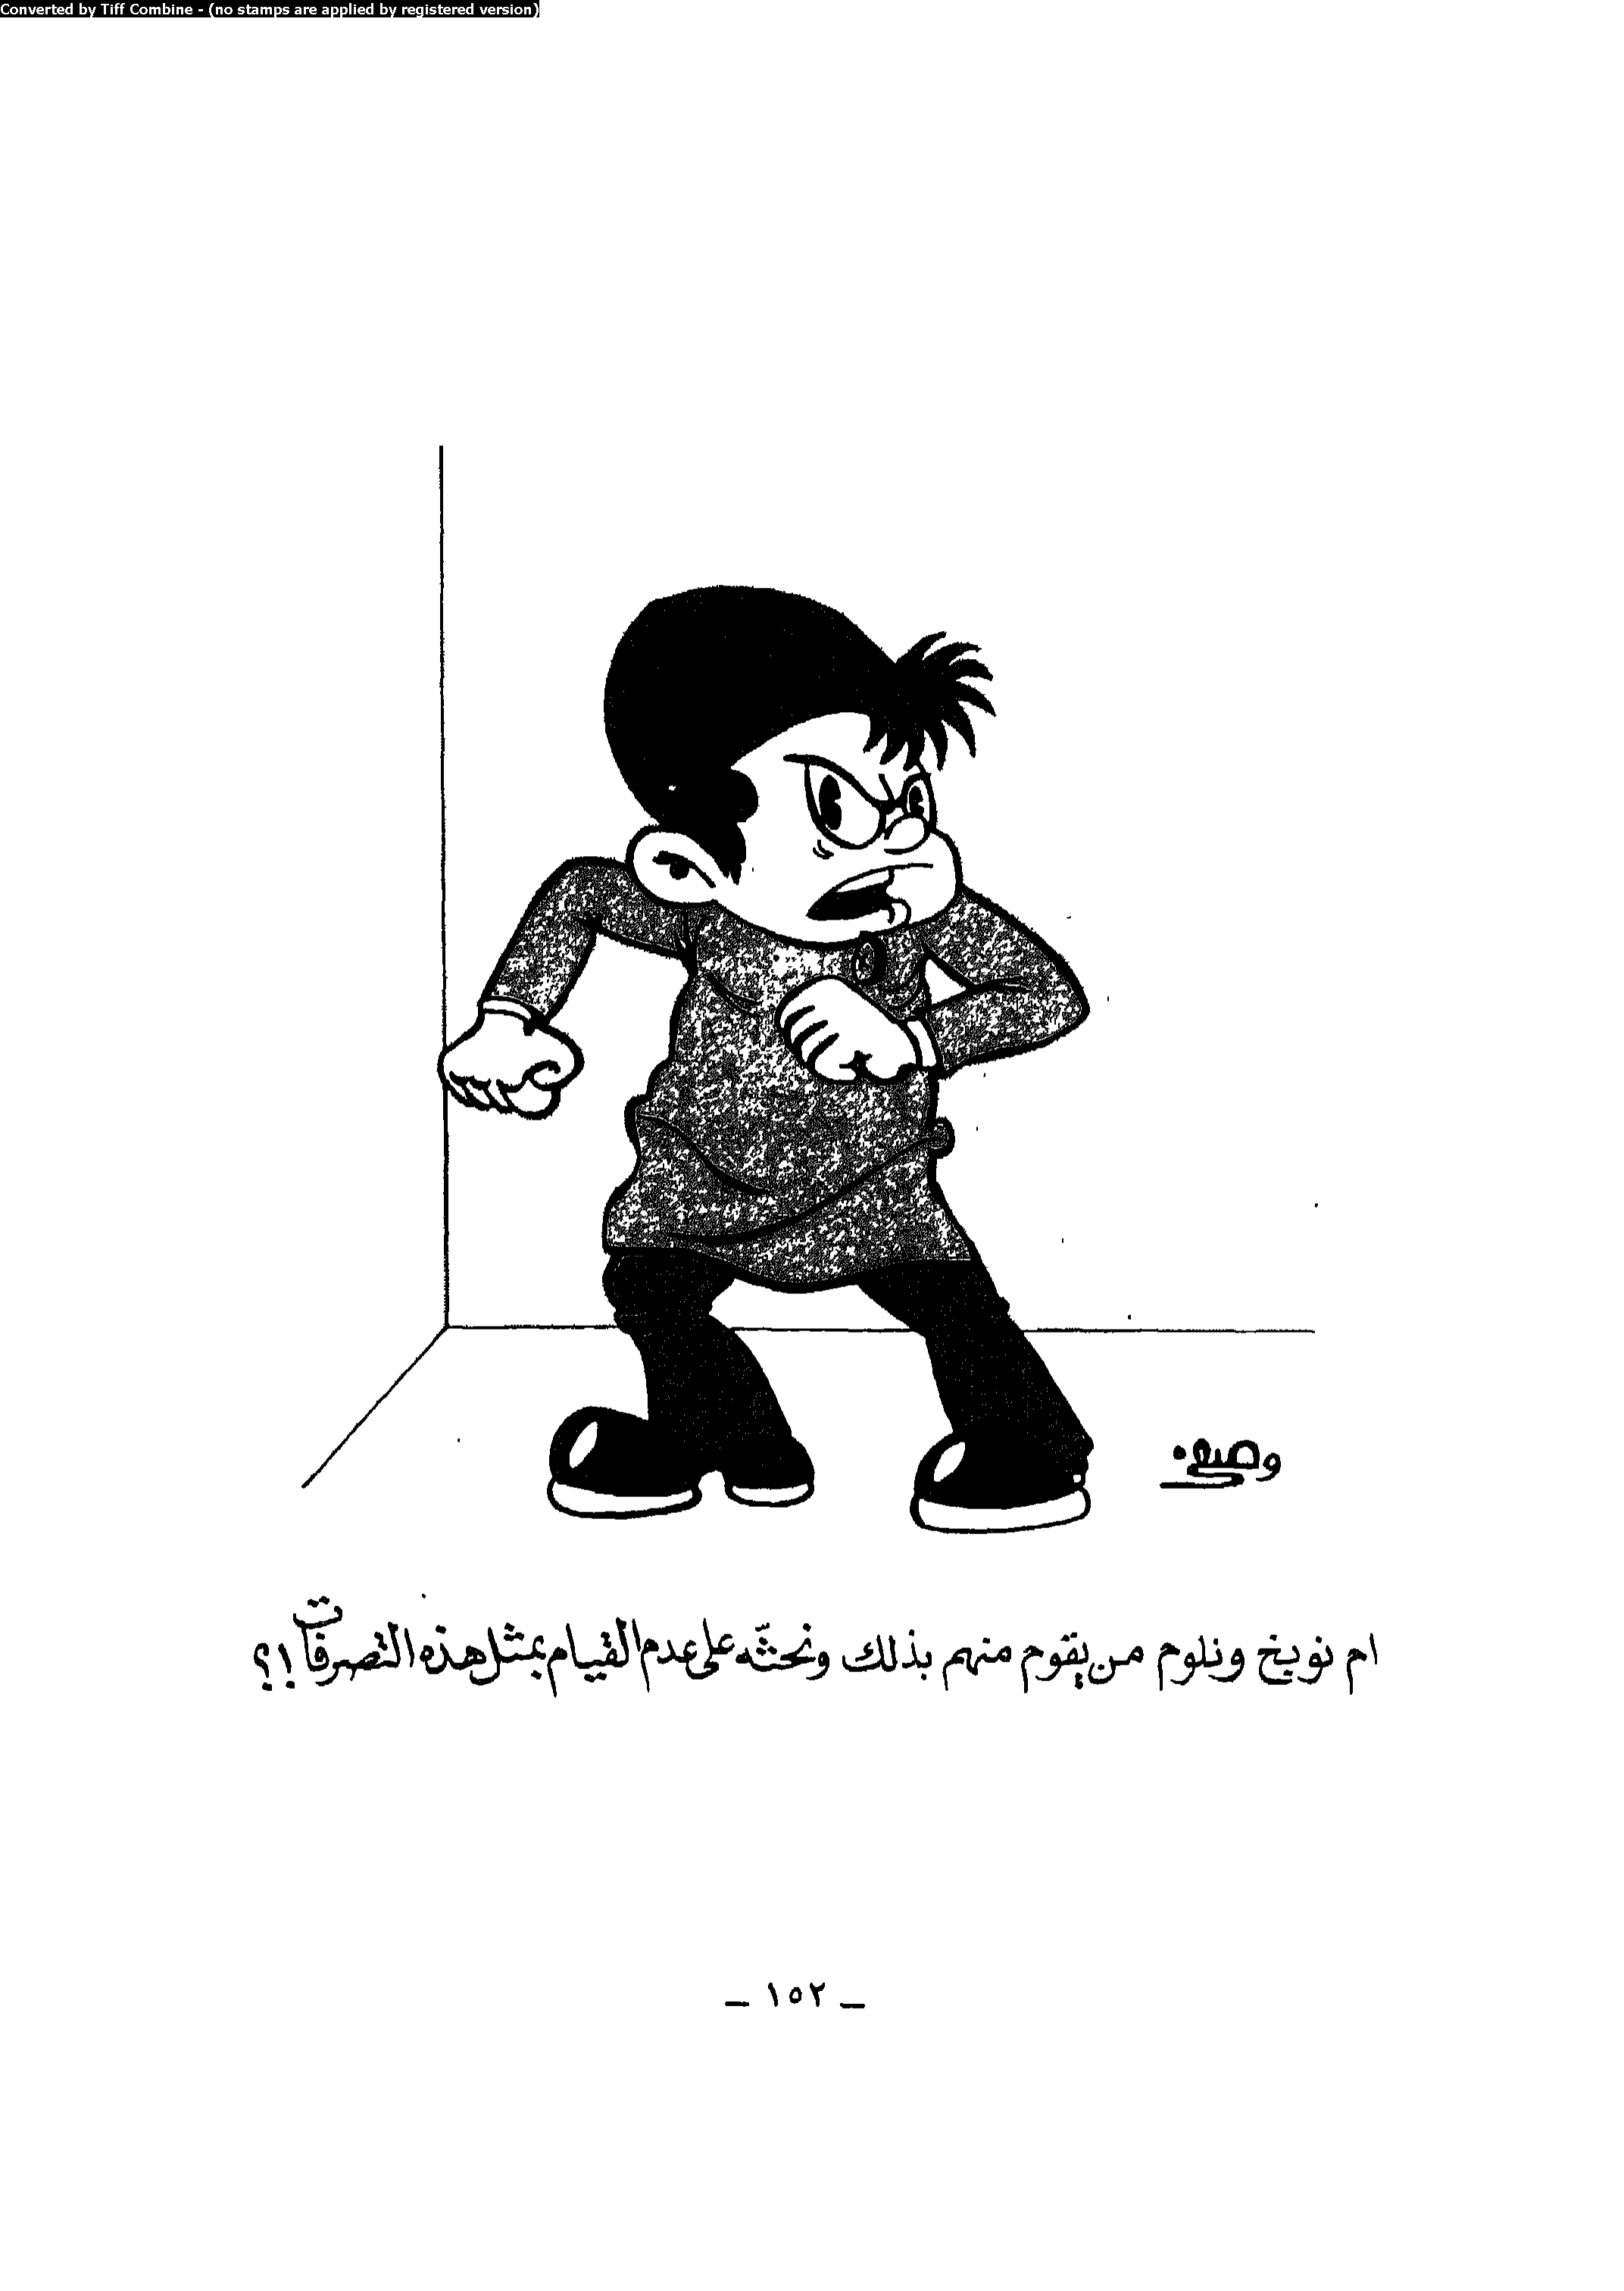 Converted by Tiff Combine - (no stamps are applied by registered version)
وصفي
ام نوبخ ونلوم من يقوم منهم بذلك ونحثّه على عدم القيام بمثل هذه التصرفات !؟
— ١٥٢ —